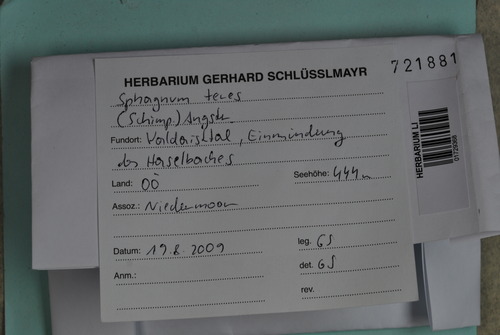 HERBARIUM GERHARD SCHLÜSSLMAYR
721881
Sphagnum teres
(Schimp.) Ångstr.
Fundort: Waldaisttal, Einmündung
des Haselbaches
Land: OÖ
Seehöhe: 444m
Assoz.: Niedermoor
Datum: 19.8.2009
leg. GS
Anm.:
det. GS
rev.
HERBARIUM LI